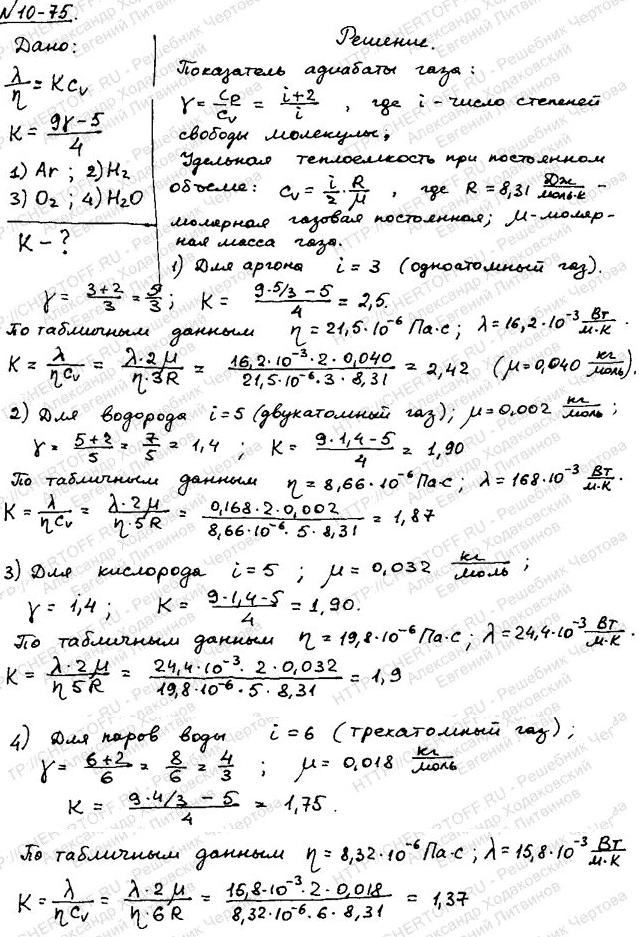 N10-75.
Дано: Решение.
λ/η = Kc_v
K = (9γ-5)/4
1) Ar ; 2) H₂
3) O₂ ; 4) H₂O
K - ?
Показатель адиабаты газа:
γ = c_p/c_v = (i+2)/i , где i - число степеней
свободы молекулы;
Удельная теплоемкость при постоянном
объеме: c_v = i/2 · R/μ , где R = 8,31 Дж/(моль·К) -
молярная газовая постоянная; μ - моляр-
ная масса газа.
1) Для аргона i = 3 (одноатомный газ).
γ = (3+2)/3 = 5/3 ; K = (9·5/3 - 5)/4 = 2,5.
По табличным данным η = 21,5·10⁻⁶ Па·с ; λ = 16,2·10⁻³ Вт/(м·К).
K = λ/(ηc_v) = (λ·2μ)/(η·3R) = (16,2·10⁻³·2·0,040)/(21,5·10⁻⁶·3·8,31) = 2,42 (μ = 0,040 кг/моль).
2) Для водорода i = 5 (двухатомный газ); μ = 0,002 кг/моль ;
γ = (5+2)/5 = 7/5 = 1,4 ; K = (9·1,4-5)/4 = 1,90
По табличным данным η = 8,66·10⁻⁶ Па·с ; λ = 168·10⁻³ Вт/(м·К).
K = λ/(ηc_v) = (λ·2μ)/(η·5R) = (0,168·2·0,002)/(8,66·10⁻⁶·5·8,31) = 1,87
3) Для кислорода i = 5 ; μ = 0,032 кг/моль ;
γ = 1,4 ; K = (9·1,4-5)/4 = 1,90.
По табличным данным η = 19,8·10⁻⁶ Па·с ; λ = 24,4·10⁻³ Вт/(м·К).
K = (λ·2μ)/(η5R) = (24,4·10⁻³·2·0,032)/(19,8·10⁻⁶·5·8,31) = 1,9
4) Для паров воды i = 6 (трехатомный газ) ;
γ = (6+2)/6 = 8/6 = 4/3 ; μ = 0,018 кг/моль
K = (9·4/3 - 5)/4 = 1,75.
По табличным данным η = 8,32·10⁻⁶ Па·с ; λ = 15,8·10⁻³ Вт/(м·К)
K = λ/(ηc_v) = (λ·2μ)/(η·6R) = (15,8·10⁻³·2·0,018)/(8,32·10⁻⁶·6·8,31) = 1,37
HTTP://CHERTOFF.RU - Решебник Чертова
Александр Ходаковский
Евгений Литвинов